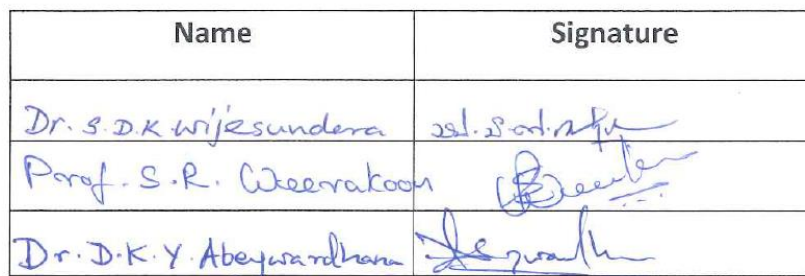 Name Signature
Dr. S.D.K Wijesundera
Prof. S.R. Weerakoon
Dr. D.K.Y. Abeywardhana